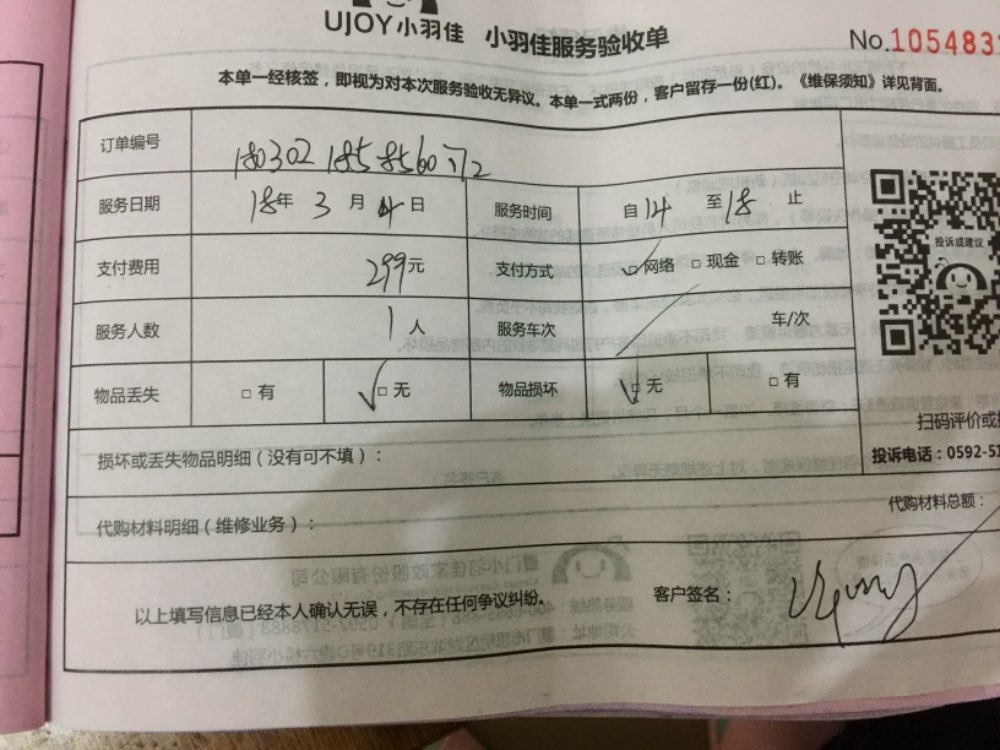 UJOY小羽佳 小羽佳服务验收单
No.105483
本单一经核签，即视为对本次服务验收无异议。本单一式两份，客户留存一份(红)。《维保须知》详见背面。
订单编号 180302 185 8560 172
服务日期 18年 3 月 4 日 服务时间 自 14 至 18 止
支付费用 299元 支付方式 网络 现金 转账
服务人数 1 人 服务车次 车/次
物品丢失 有 无 物品损坏 无 有
投诉或建议
扫码评价或
投诉电话：0592-51
损坏或丢失物品明细（没有可不填）：
代购材料明细（维修业务）： 代购材料总额：
以上填写信息已经本人确认无误，不存在任何争议纠纷。 客户签名：